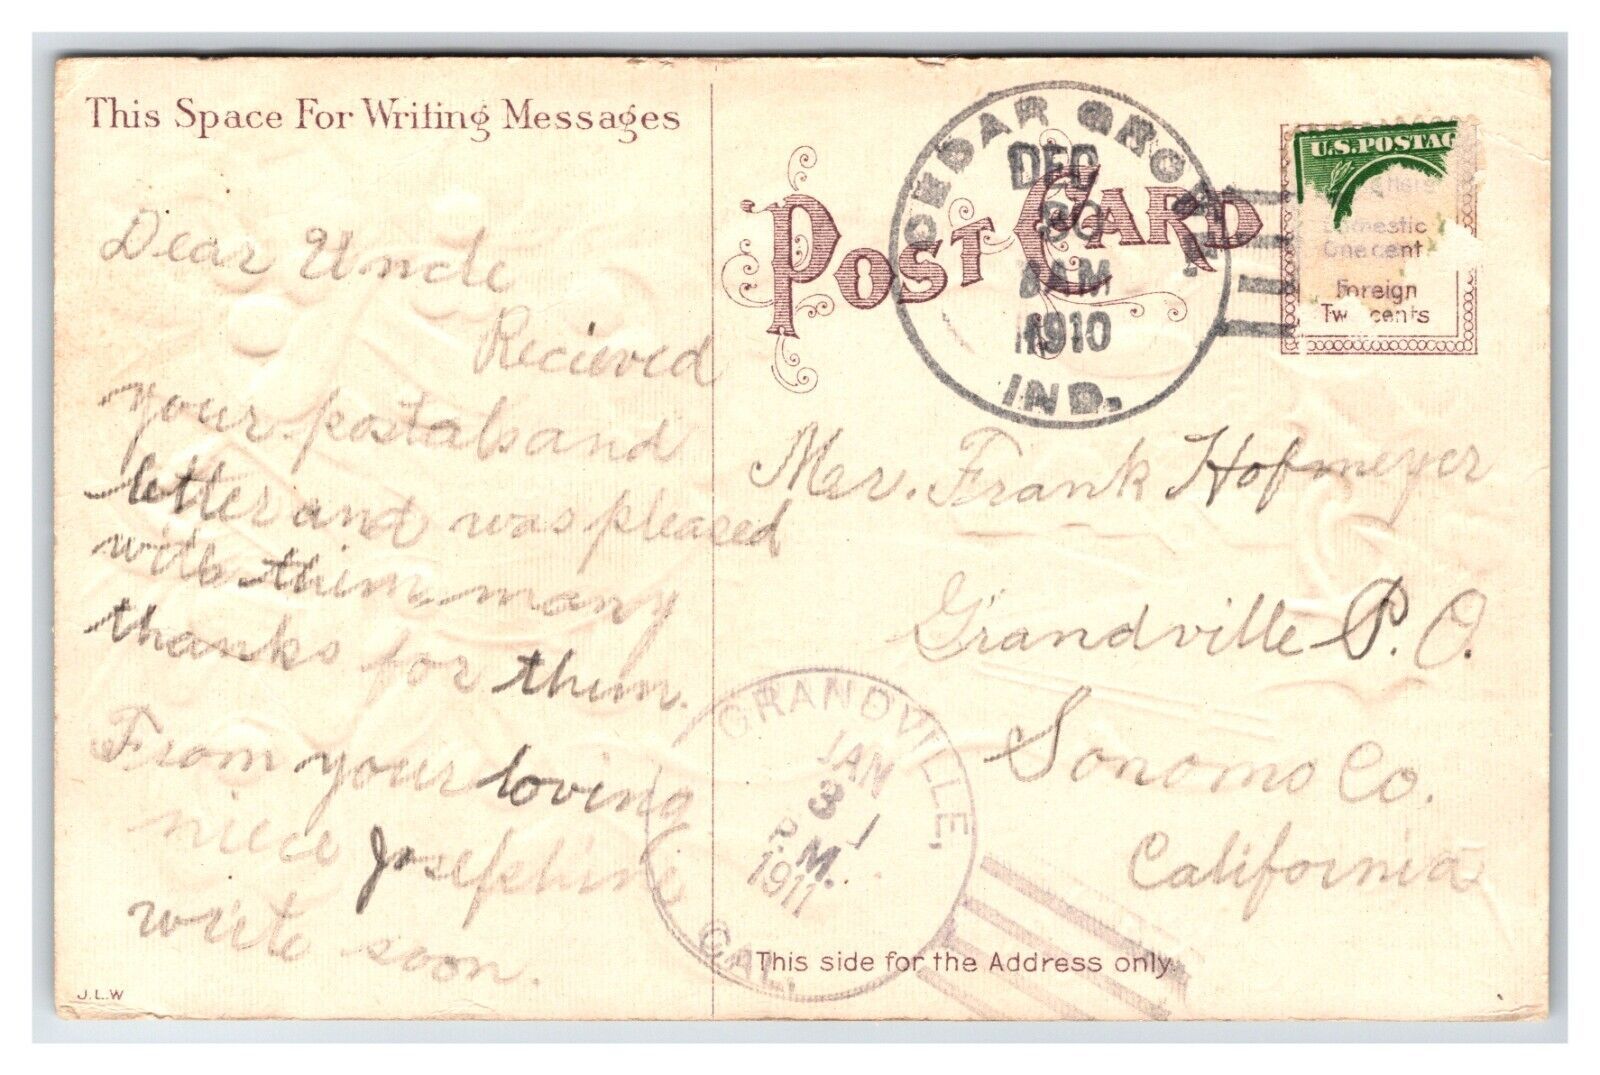 This Space For Writing Messages
POST CARD
CEDAR GROVE
DEC
30
8AM
1910
IND.
U.S. POSTAG
Domestic
One cent
Foreign
Two cents
Dear Uncle
Recieved
your postals and
letter and was pleased
with them many
thanks for them.
From your loving
niece Josephine
write soon.
Mr. Frank Hofmeyer
Grandville P. O.
Sonomo Co.
California
GRANDVILLE,
JAN
3
P.M.
1911
CAL.
This side for the Address only.
J.L.W